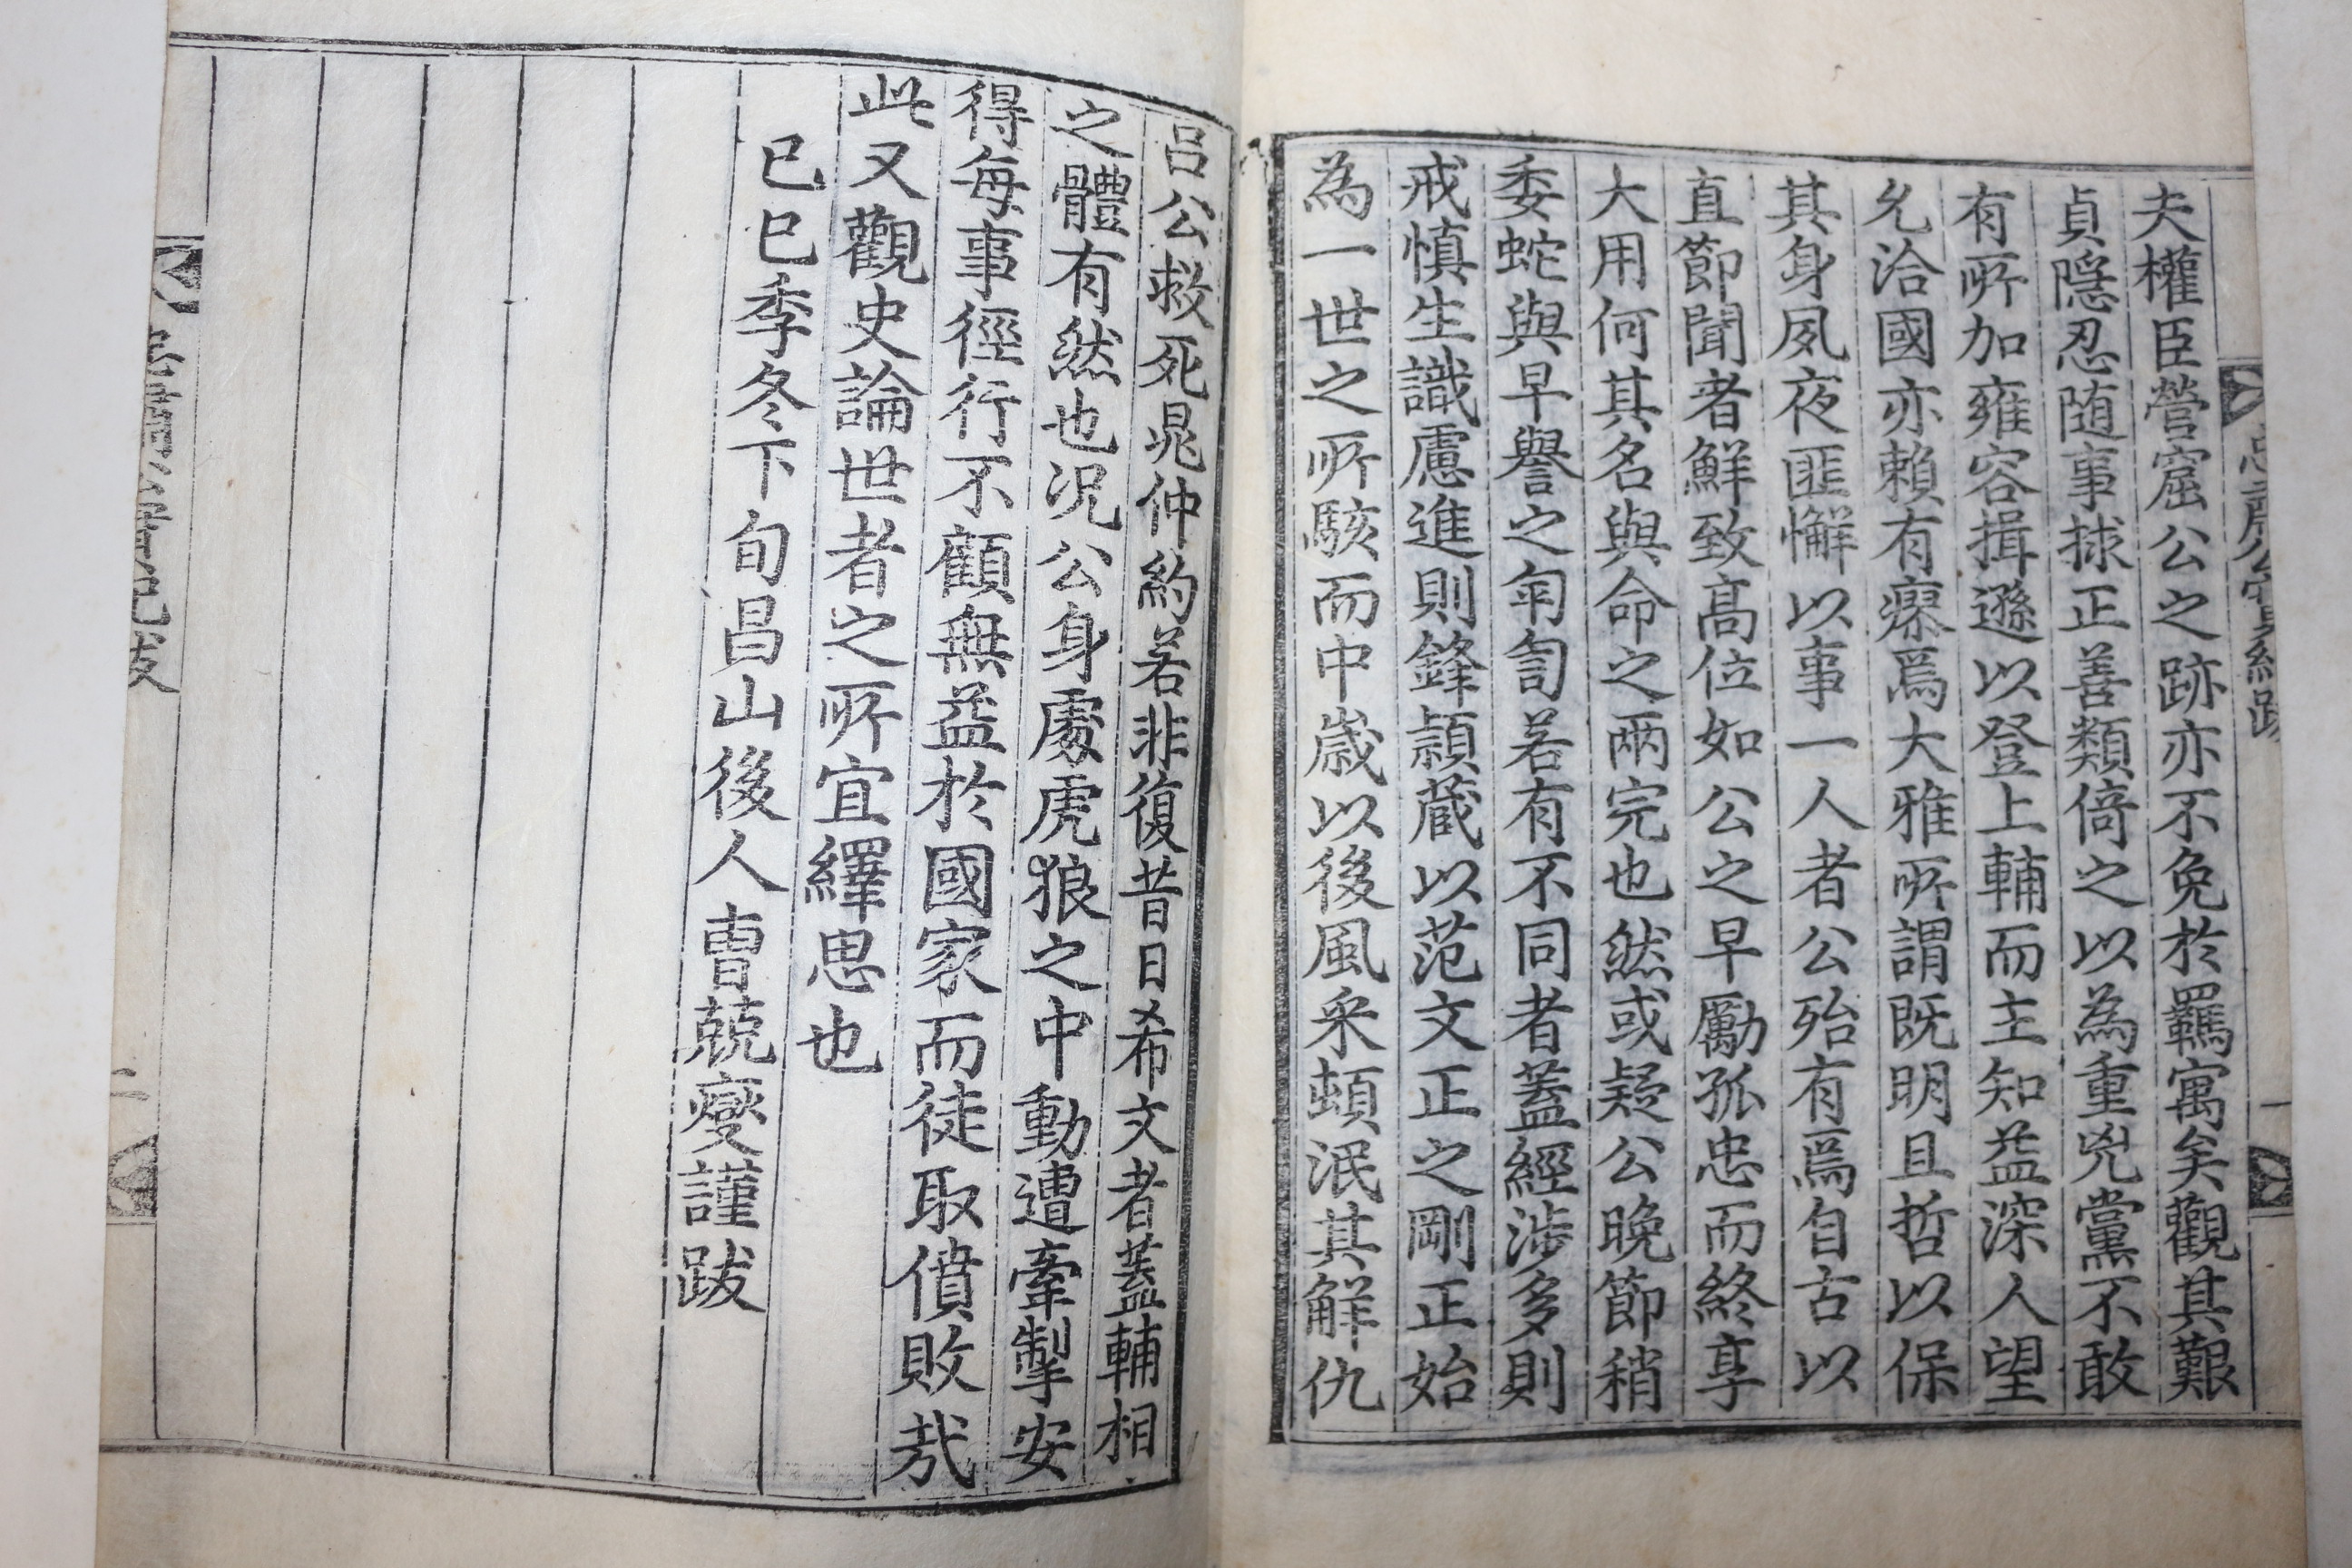 夫權臣營窟公之跡亦不免於羈寓矣觀其艱
貞隱忍随事捄正善類倚之以為重兇黨不敢
有所加雍容揖遜以登上輔而主知益深人望
允洽國亦賴有瘳焉大雅所謂既明且哲以保
其身夙夜匪懈以事一人者公殆有焉自古以
直節聞者鮮致高位如公之早勵孤忠而終享
大用何其名與命之兩完也然或疑公晚節稍
委蛇與早譽之訇訇若有不同者蓋經涉多則
戒慎生識慮進則鋒頴蔵以范文正之剛正始
為一世之所駭而中歲以後風采頓泯其解仇
呂公救死晁仲約若非復昔日希文者蓋輔相
之體有然也况公身處虎狼之中動遭牽掣安
得每事徑行不顧無益於國家而徒取僨敗哉
此又觀史論世者之所宜繹思也
己巳季冬下旬昌山後人曺兢燮謹跋